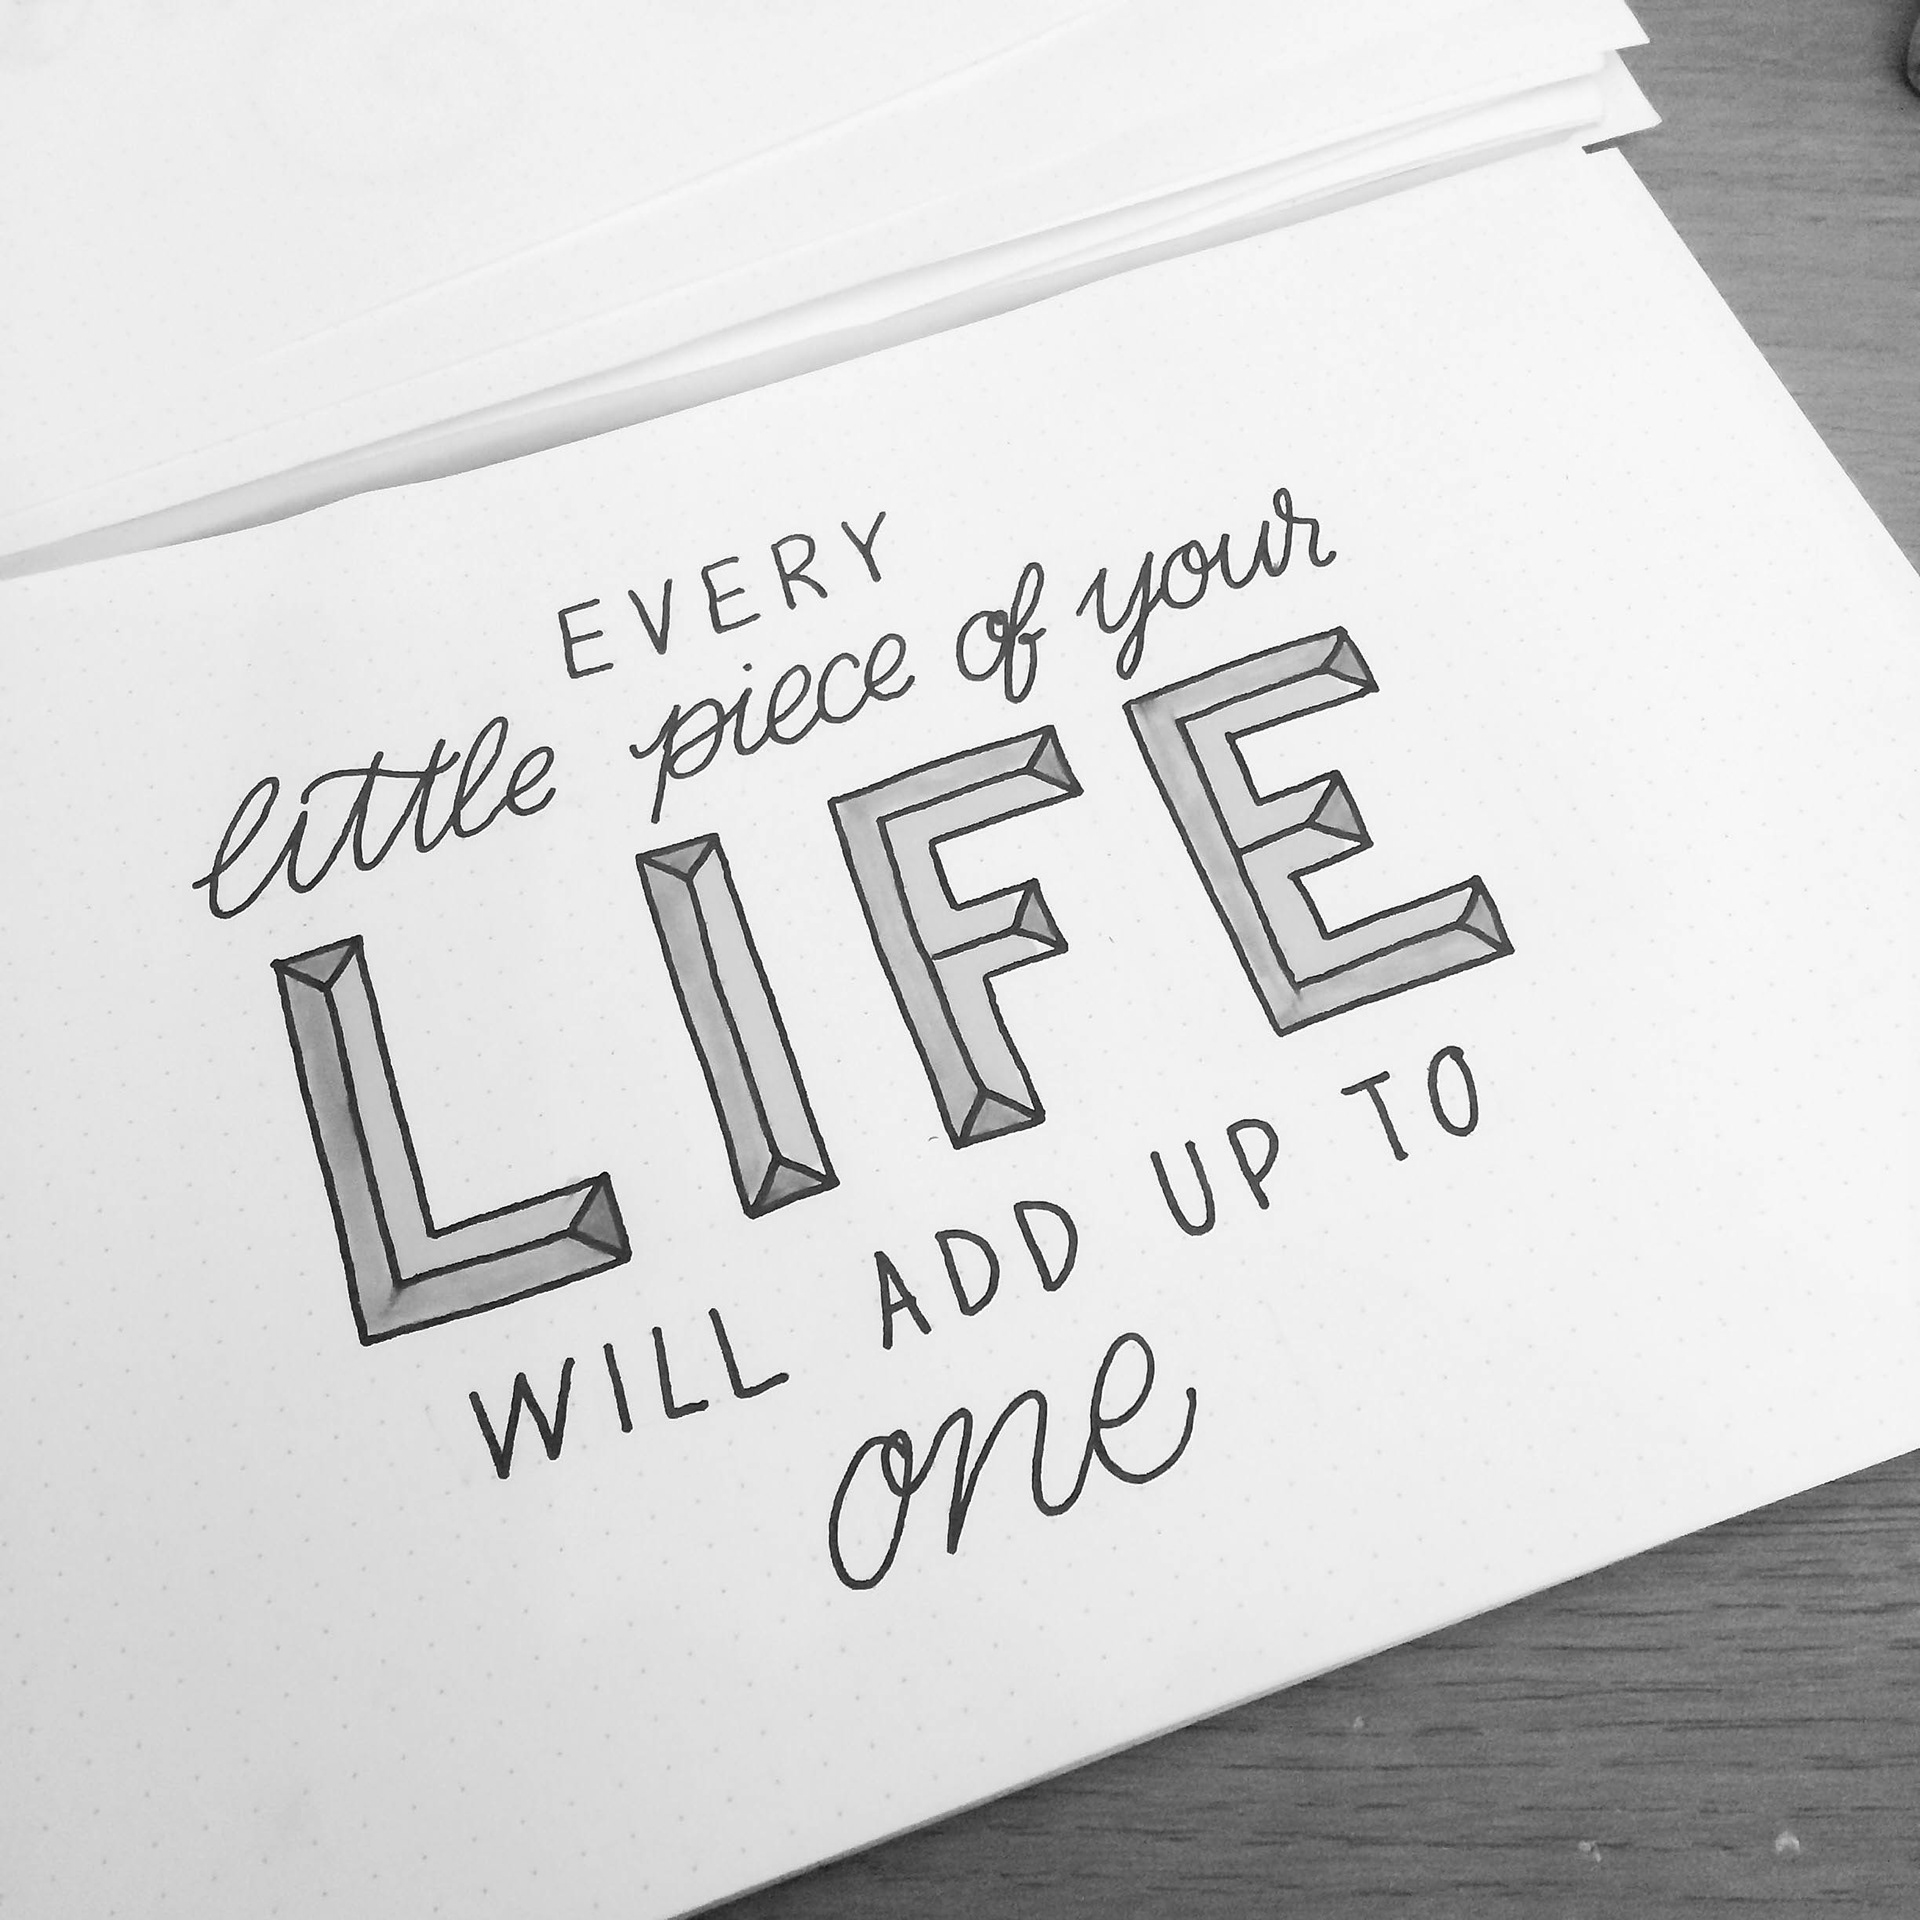 EVERY
little piece of your
LIFE
WILL ADD UP TO
one